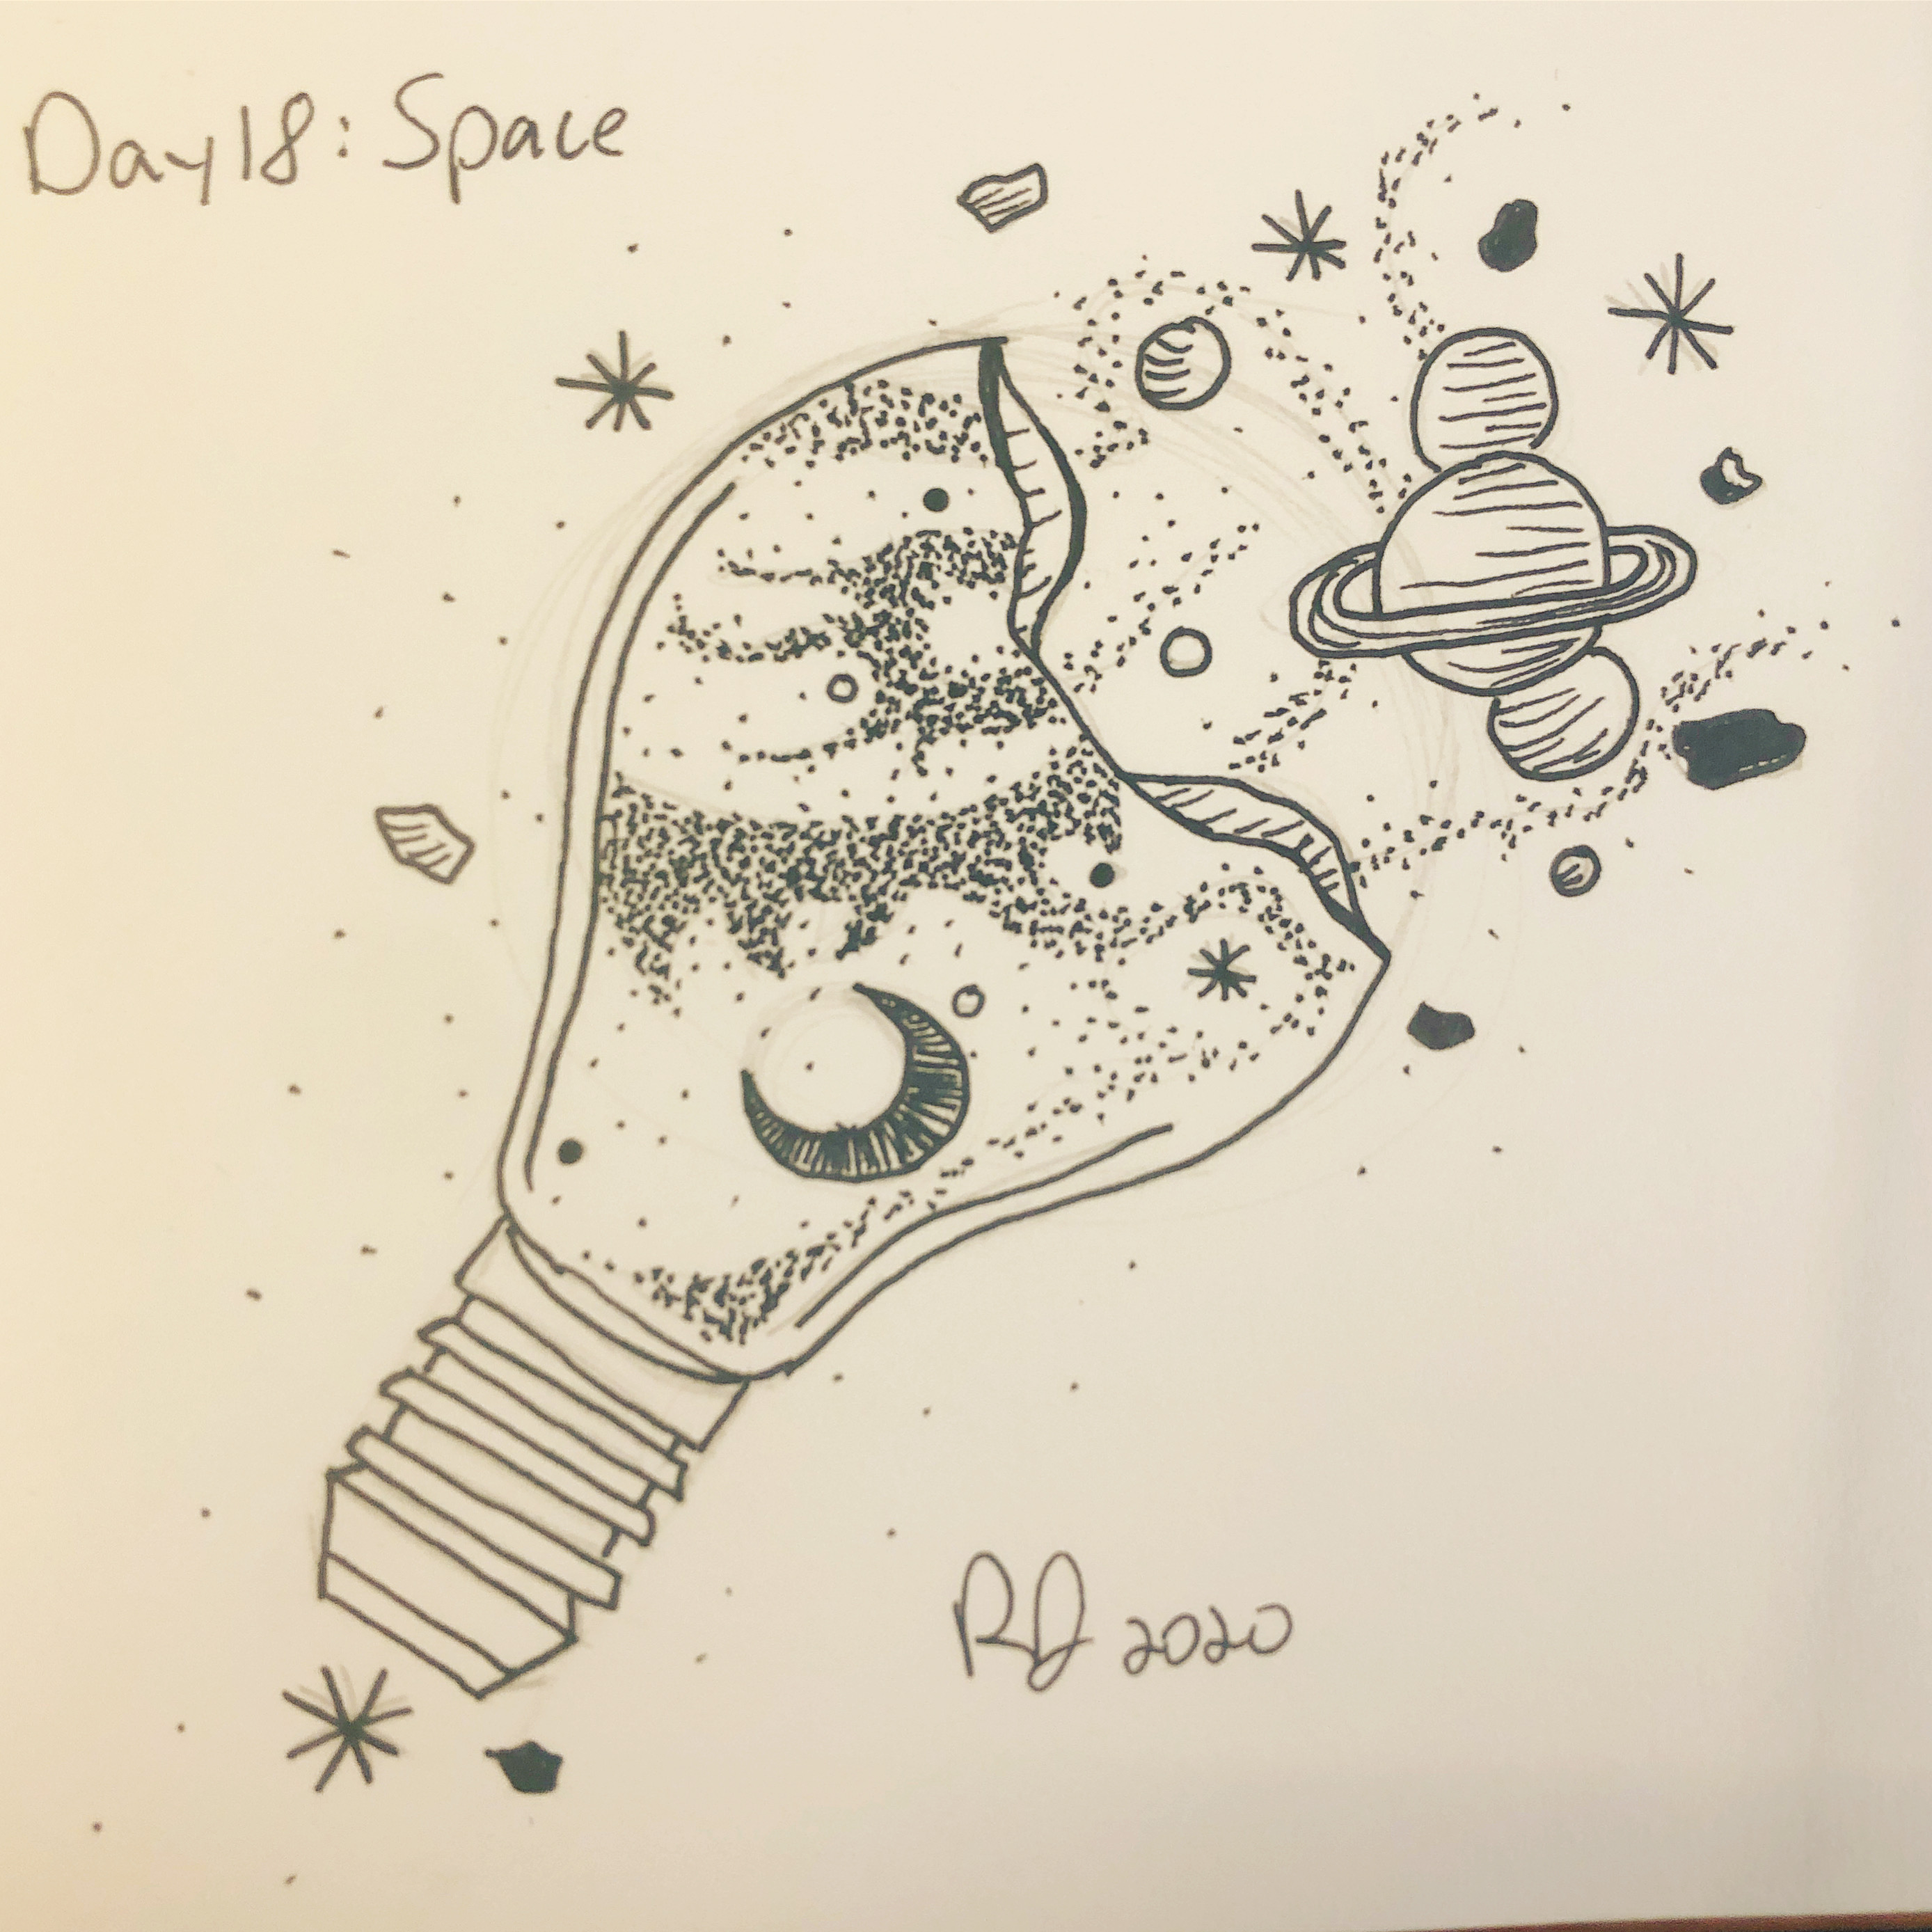 Day 18: Space
RD 2020